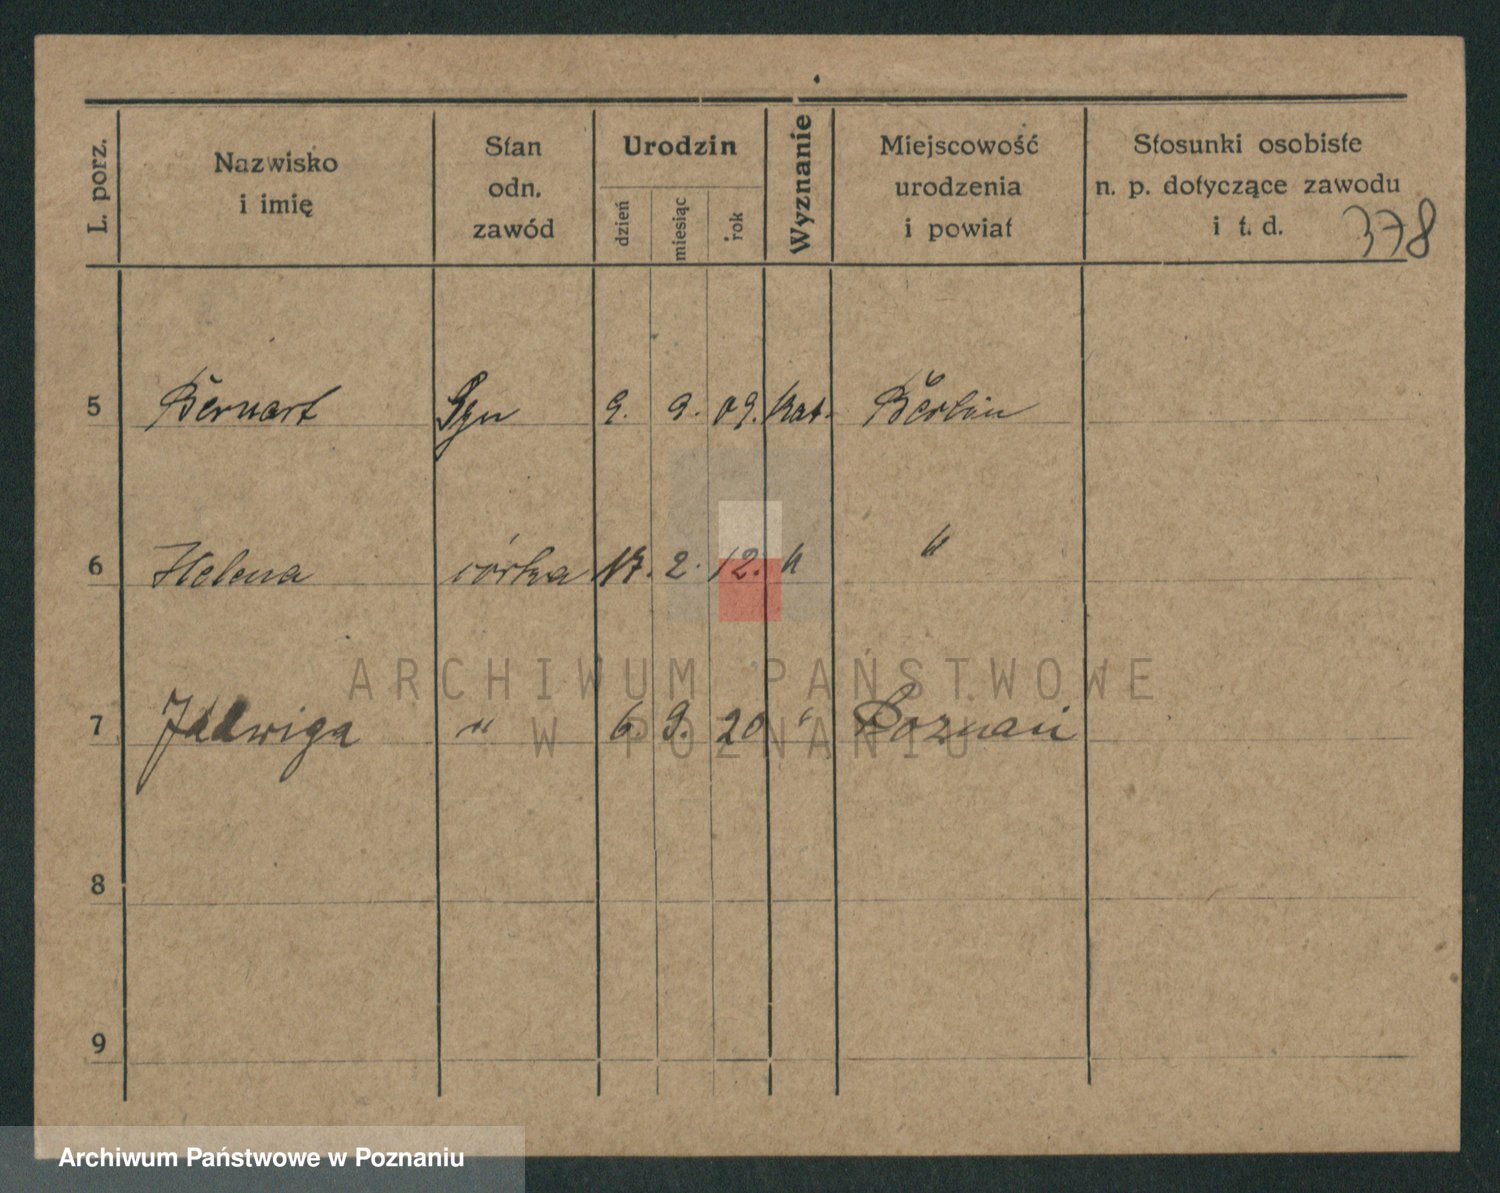 L. porz. Nazwisko i imię Stan odn. zawód Urodzin dzień miesiąc rok Wyznanie Miejscowość urodzenia i powiat Stosunki osobiste n. p. dotyczące zawodu i t. d.
378
5 Bernart Syn 9. 9. 09. kat. Berlin
6 Helena córka 17. 2. 12. " "
7 Jadwiga " 6. 9. 20 " Poznań
8
9
ARCHIWUM PAŃSTWOWE
W POZNANIU
Archiwum Państwowe w Poznaniu